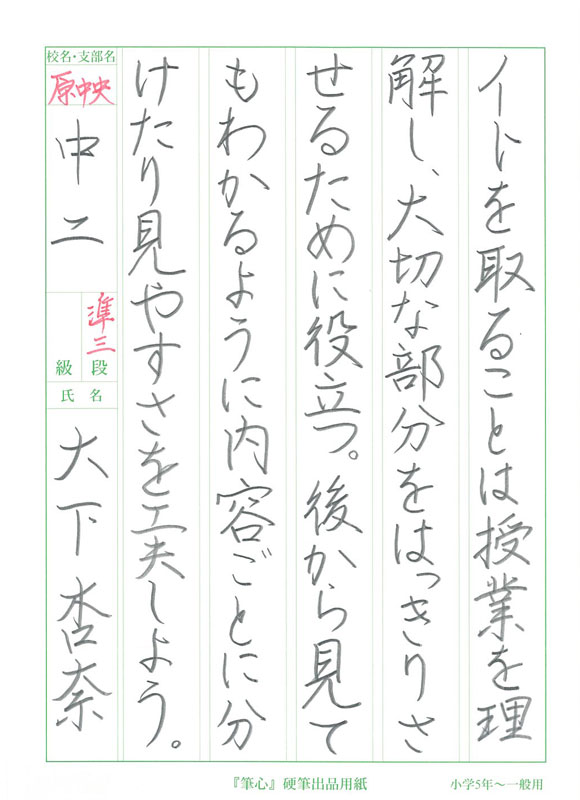 イトを取ることは授業を理
解し、大切な部分をはっきりさ
せるために役立つ。後から見て
もわかるように内容ごとに分
けたり見やすさを工夫しよう。
校名・支部名
原中央
中二
準三
段
級
氏名
大下杏奈
『筆心』硬筆出品用紙
小学5年〜一般用